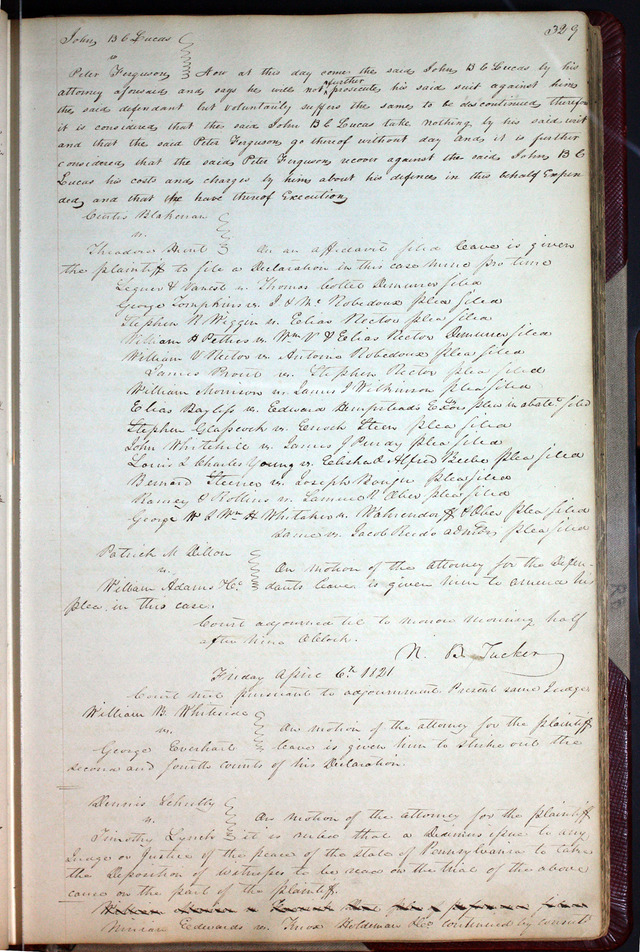 329
John B C Lucas
vs
Peter Ferguson Now at this day come the said John B C Lucas by his
attorney aforesaid and says he will not further prosecute his said suit against him
the said defendant but voluntarily suffers the same to be discontinued therefore
it is considered that the said John B C Lucas take nothing by his said writ
and that the said Peter Ferguson go thereof without day and it is further
considered that the said Peter Ferguson recover against the said John B C
Lucas his costs and charges by him about his defence in this behalf Expen
ded, and that he have thereof Execution
Curtis Blakeman
vs.
Theodore Hunt On an affidavit filed leave is given
the plaintiff to file a Declaration in this case nunc pro tunc
vs. Thomas Demurrer filed
George Tompkins vs. J & Mc Robedoux plea filed
Stephen R Wiggin vs. Elias Rector plea filed
William H Pettus vs. Wm V & Elias Rector Demurrer filed
William V Rector vs. Antoine Robedoux plea filed
James vs. Stephen Rector plea filed
William Morrison vs. James J Wilkinson plea filed
Elias Bayliss vs. Edward Hempsteads plea in abatet filed
Stephen Glasscock vs. Enoch Steen plea filed
John Whitehill vs. James J Purdy plea filed
Louis & Charles Young vs. Elisha & Alfred Beebe plea filed
Bernard vs. Joseph plea filed
Ramsey & Rollins vs. Samuel R Ober plea filed
George W & Wm H Whitaker vs. Wahrendorff & Ober plea filed
Same vs. Jacob admrs. plea filed
Patrick M Dillon
vs.
William Adams &c. On motion of the attorney for the Defen-
dants leave is given him to amend his
plea in this case.
Court adjourned til to morrow morning half
after nine OClock.
N. B. Tucker
Friday April 6th. 1821
Court met pursuant to adjournment. Present same Judge
William B. Whiteside
vs.
George Everhart On motion of the attorney for the plaintiff
leave is given him to strike out the
second and fourth counts of his Declaration.
Dennis Schultz
v.
Timothy Lynch On motion of the attorney for the plaintiff
it is ruled that a Dedimus issue to any
Judge or Justice of the peace of the state of Pennsylvania to take
the deposition of witnesses to be read on the trial of the above
cause on the part of the plaintiff.
Ninian Edwards vs. Knox Holdeman &c. continued by consent